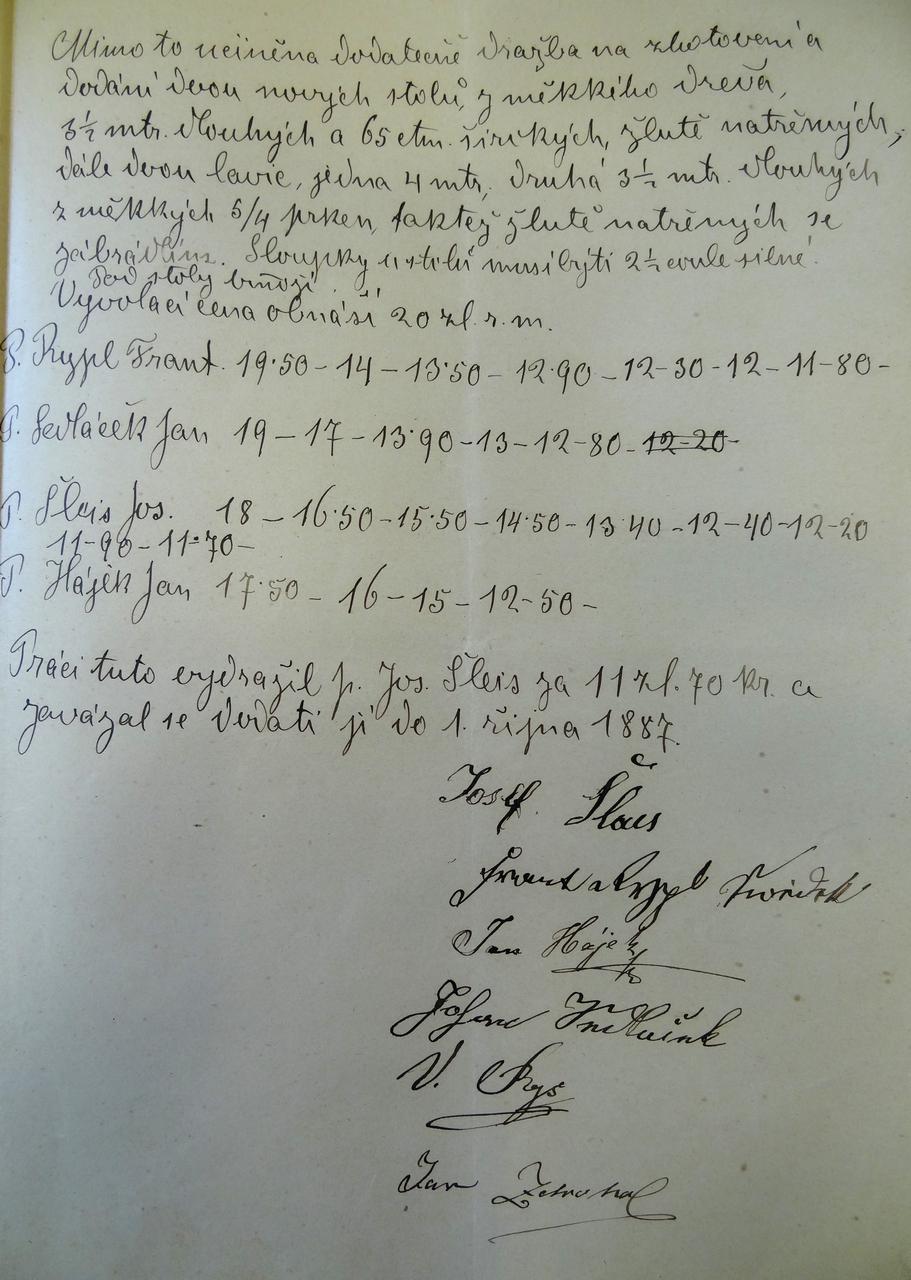 Mimo to učiněna dodatečně dražba na zhotovení a
dodání dvou nových stolů, z měkkého dřeva,
3½ mtr. dlouhých a 65 ctm. širokých, žlutě natřených,
dále dvou lavic, jedna 4 mtr, druhá 3½ mtr. dlouhých
z měkkých 5/4 prken, taktéž žlutě natřených se
zábradlím. Sloupky u stolů musí býti 2½ coule silné.
Pod stoly
Vyvolací cena obnáší 20 zl. r. m.
P. Rypl Frant. 19·50 - 14 - 13·50 - 12·90 - 12-30 - 12 - 11-80 -
P. Sedláček Jan 19 - 17 - 13·90 - 13 - 12-80 - 12-20 -
P. Šleis Jos. 18 - 16·50 - 15·50 - 14·50 - 13 40 - 12-40 - 12-20
11-90 - 11-70 -
P. Hájek Jan 17·50 - 16 - 15 - 12-50 -
Práci tuto vydražil p. Jos. Šleis za 11 zl. 70 kr. a
zavázal se dodati ji do 1. října 1887.
Josef Šleis
Frant Rypl
Jan Hájek
Johan Sedlaček
V.
Jan